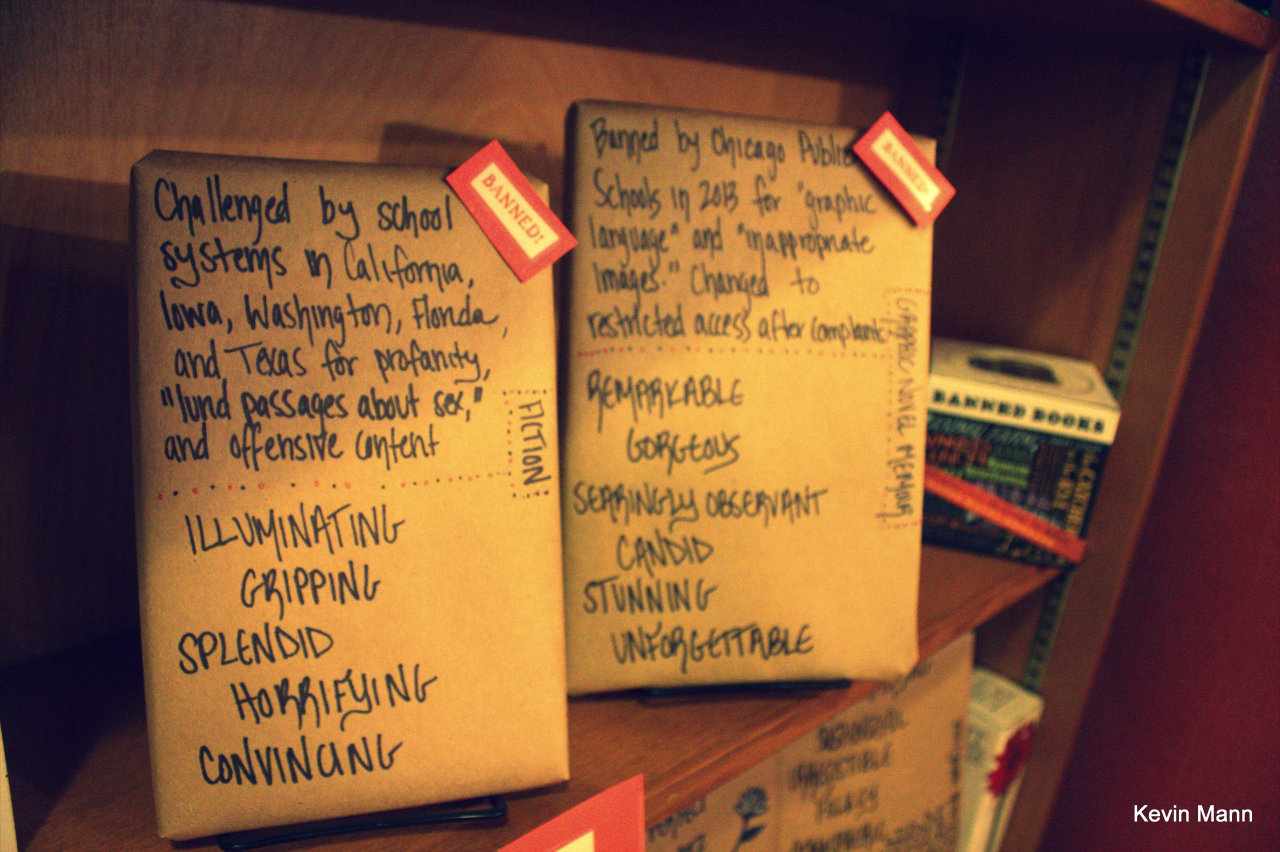 Challenged by school
systems in California,
Iowa, Washington, Florida,
and Texas for profanity,
"lurid passages about sex,"
and offensive content
FICTION
ILLUMINATING
GRIPPING
SPLENDID
HORRIFYING
CONVINCING
BANNED!
Banned by Chicago Public
Schools in 2013 for "graphic
language" and "inappropriate
images." Changed to
restricted access after complaints
GRAPHIC NOVEL MEMOIR
REMARKABLE
GORGEOUS
SEARINGLY OBSERVANT
CANDID
STUNNING
UNFORGETTABLE
BANNED!
BANNED BOOKS
Kevin Mann